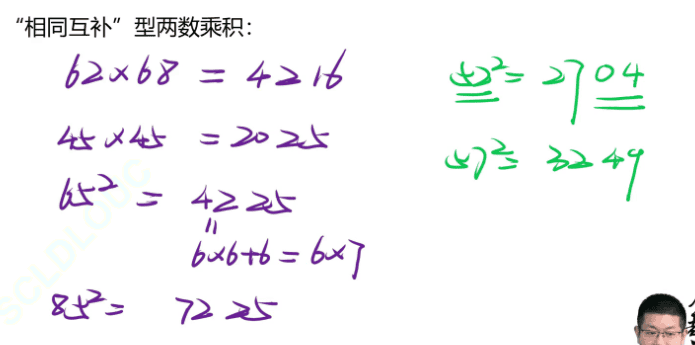 “相同互补”型两数乘积：
62×68 = 4216
45×45 = 2025
65² = 4225
=
6×6+6 = 6×7
85² = 7225
52² = 2704
57² = 3249
SCLDLOUC